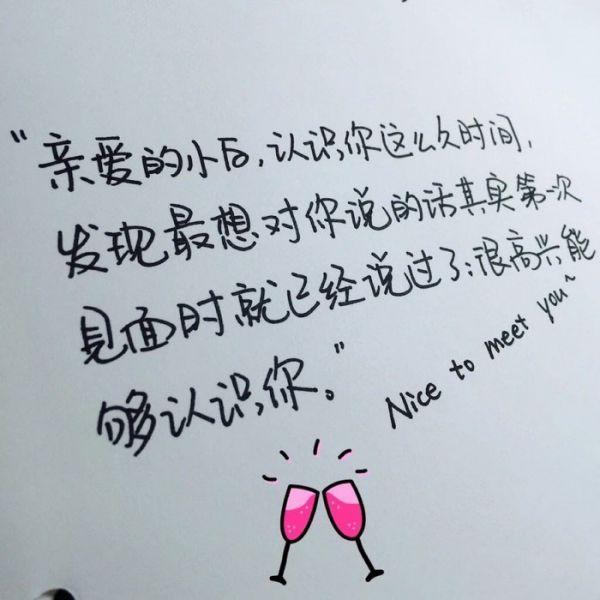 “亲爱的小后,认识你这么久时间,
发现最想对你说的话其实第一次
见面时就已经说过了:很高兴能
够认识你。”
Nice to meet you~